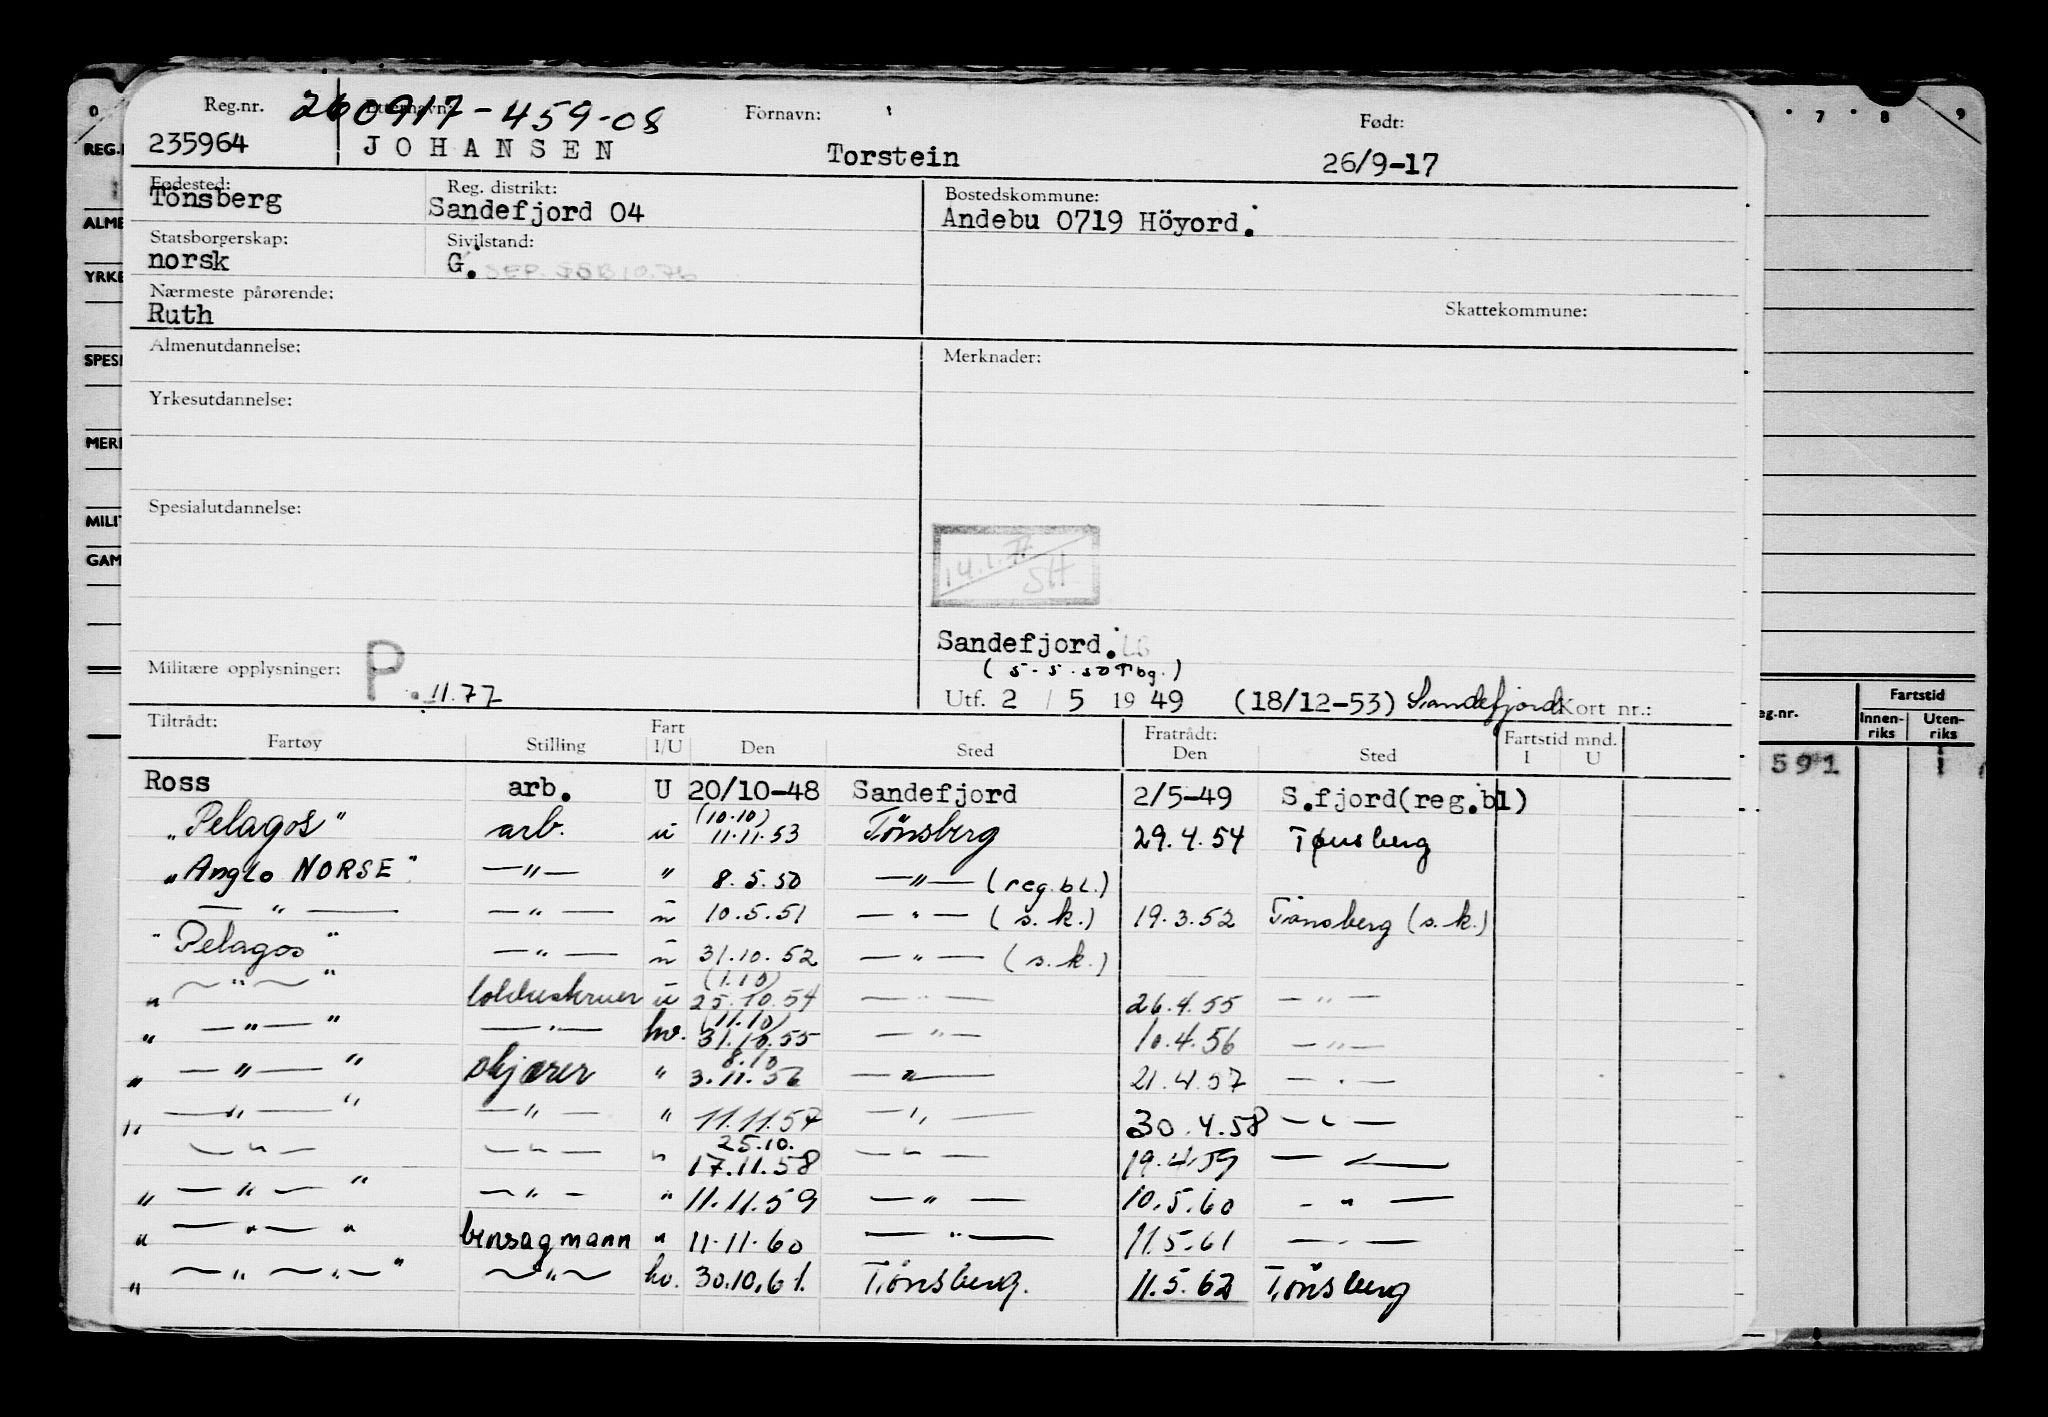 Reg.nr. 260917-459-08 Etternavn: Fornavn: Født:
235964 JOHANSEN Torstein 26/9-17
Fødested: Reg. distrikt: Bostedskommune:
Tönsberg Sandefjord 04 Andebu 0719 Höyord.
Statsborgerskap: Sivilstand:
norsk G. SEP. SSB 10.76
Nærmeste pårørende: Skattekommune:
Ruth
Almenutdannelse: Merknader:
Yrkesutdannelse:
Spesialutdannelse:
14.1.77 SH
Sandefjord.
(5-5.50 Tbg.)
Militære opplysninger: P. 11.77 Utf. 2 / 5 19 49 (18/12-53) Sandefjord Kort nr.:
Tiltrådt: Fart Fratrådt: Fartstid mnd.
Fartøy Stilling I/U Den Sted Den Sted I U
Ross arb. U 20/10-48 Sandefjord 2/5-49 S.fjord(reg.bl)
(10.10)
„Pelagos" arb. u 11.11.53 Tönsberg 29.4.54 Tønsberg
„Anglo NORSE" —"— " 8.5.50 —"— (reg.bl.)
—"— —"— u 10.5.51 —"— (s.k.) 19.3.52 Tönsberg (s.k.)
"Pelagos" —"— u 31.10.52 —"— (s.k.)
(1.10)
" —"— " u 25.10.54 —"— 26.4.55 —"—
(11.10)
" —"— " —"— hv. 31.10.55 —"— 10.4.56 —"—
8.10
" —"— " skjærer " 3.11.56 —"— 21.4.57 —"—
" —"— " —"— " 11.11.57 —"— 30.4.58 —"—
25.10.
—"— —"— " 17.11.58 —"— 19.4.59 —"—
" —"— " —"— " 11.11.59 —"— 10.5.60 —"—
" —"— " bensagmann " 11.11.60 —"— 11.5.61 —"—
" —"—"— " —"— hv. 30.10.61. Tönsberg. 11.5.62 Tönsberg
0 7 8 9
REG.
ALME
YRKE
SPESI
MER
MILIT
GAM
Fartstid
eg.nr. Innen-riks Uten-riks
591 1